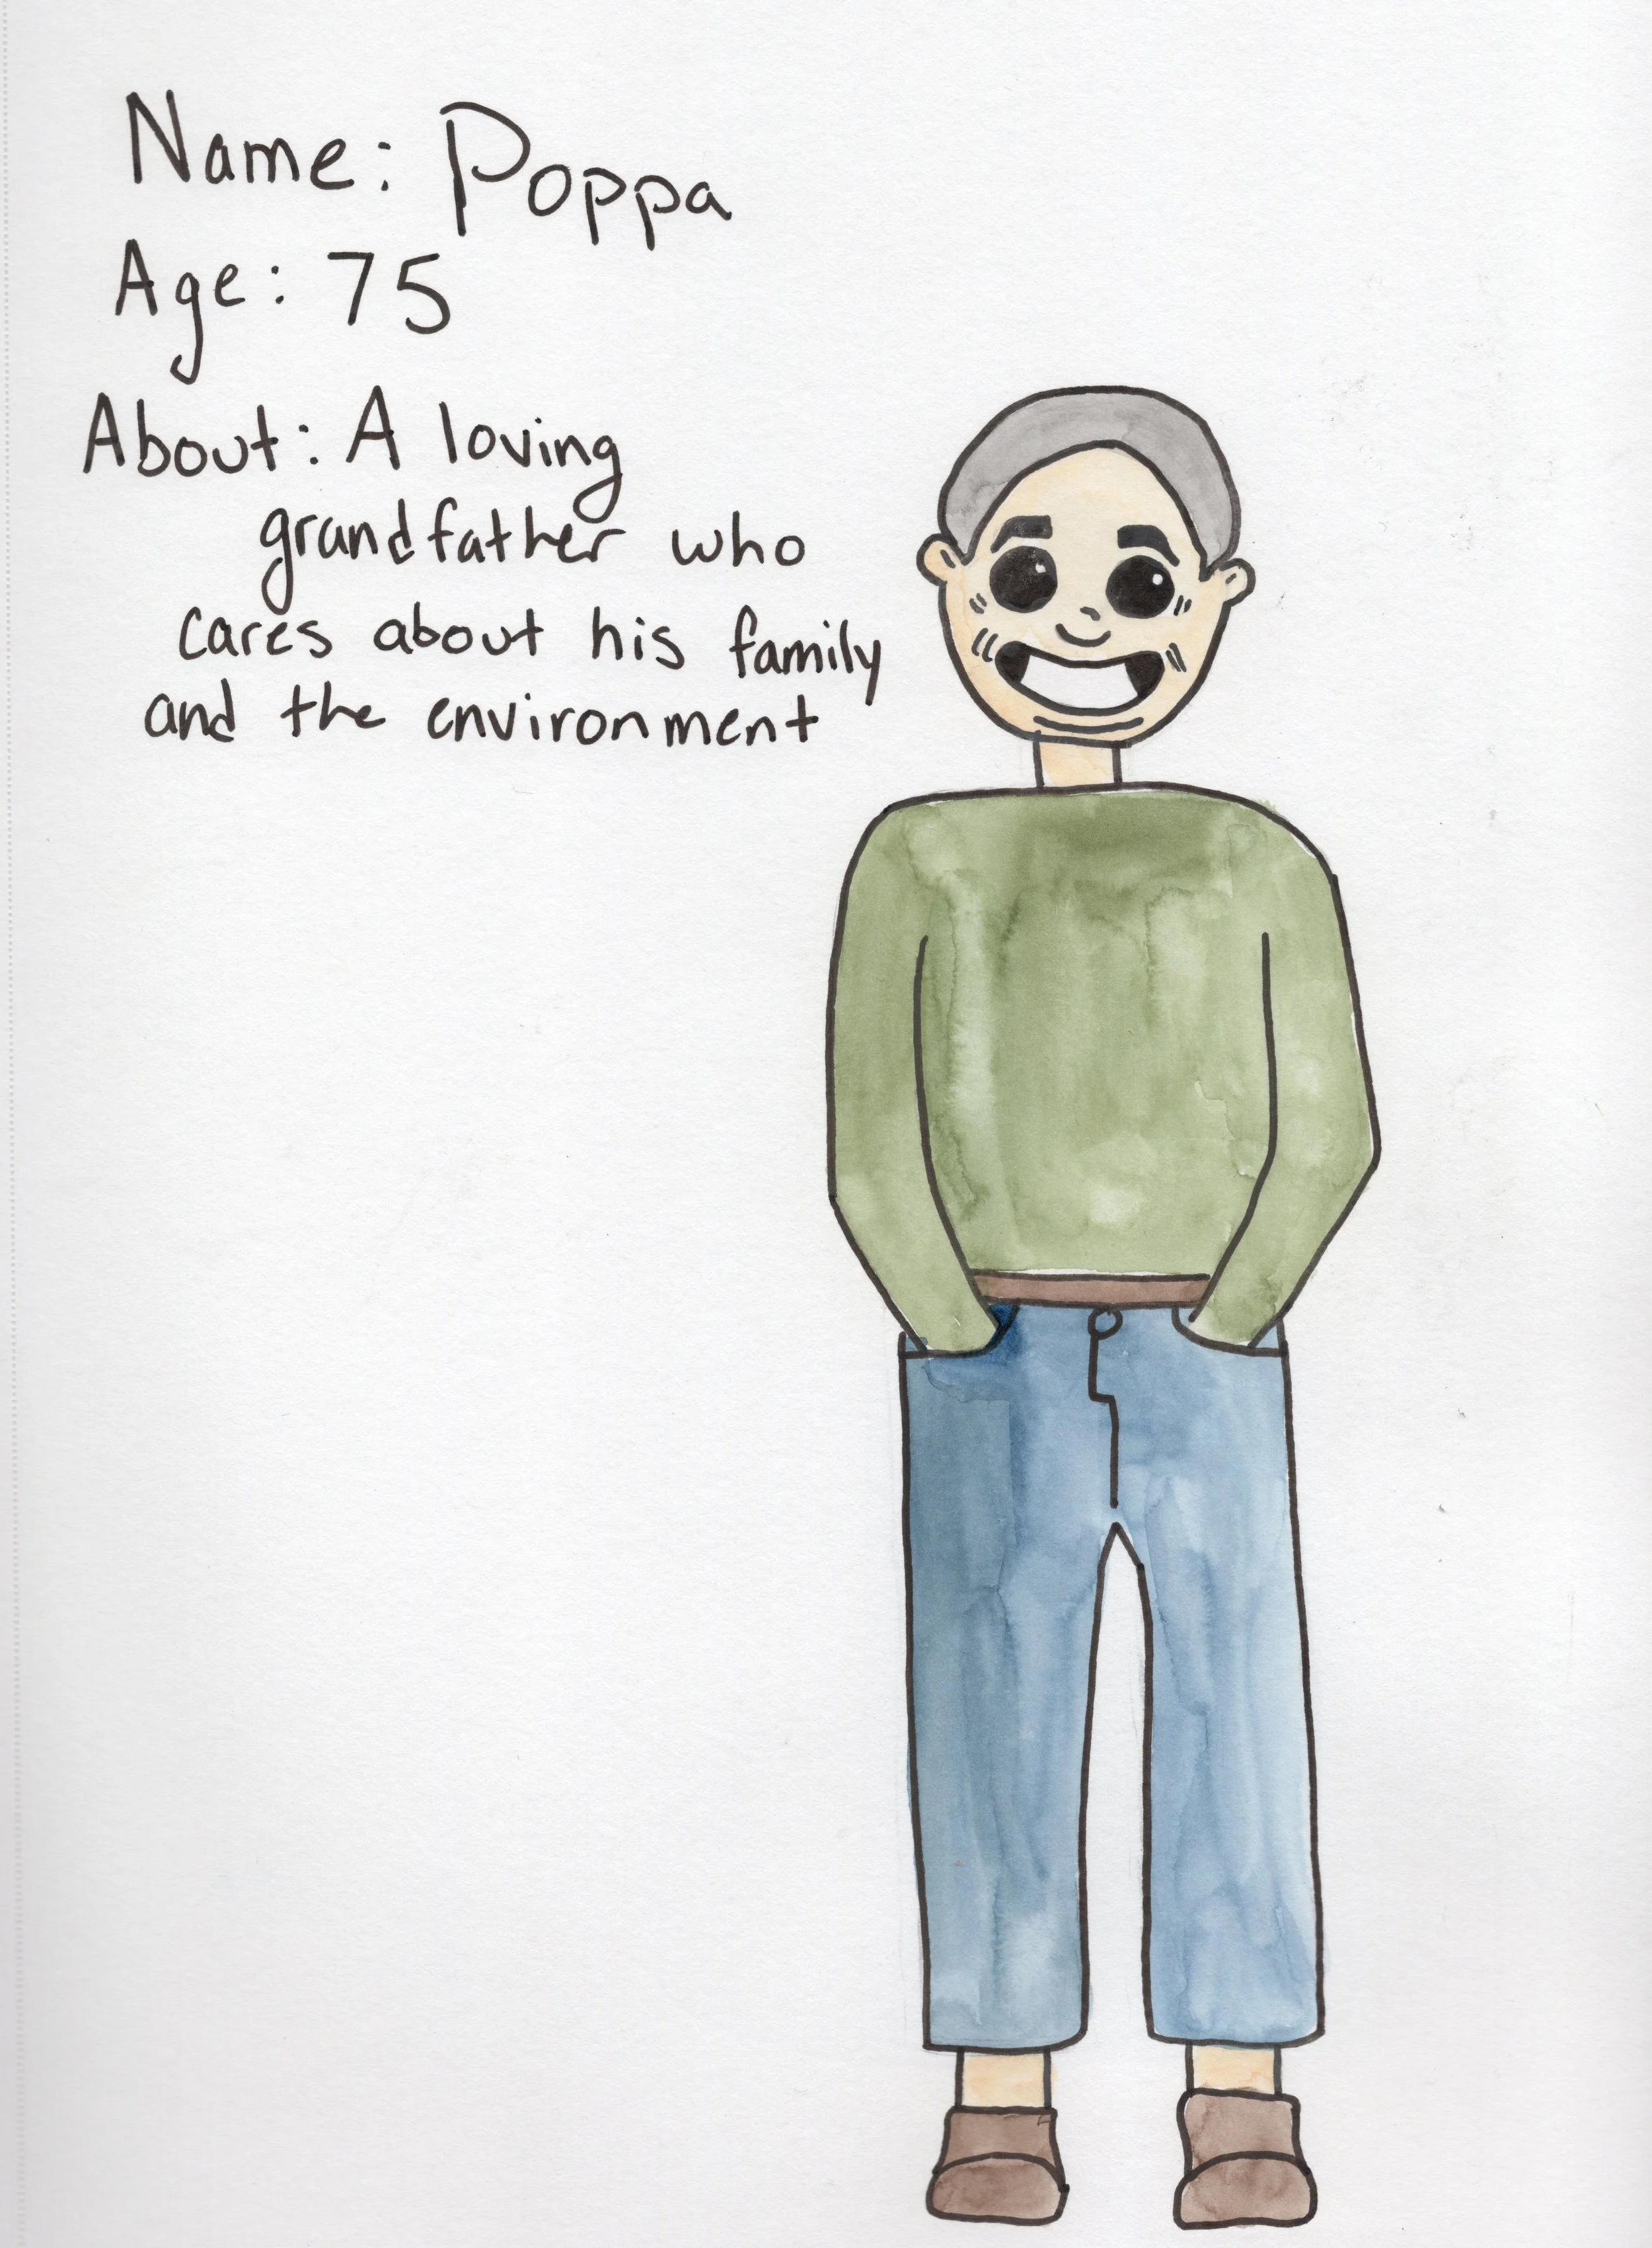 Name: Poppa
Age: 75
About: A loving
grandfather who
cares about his family
and the environment